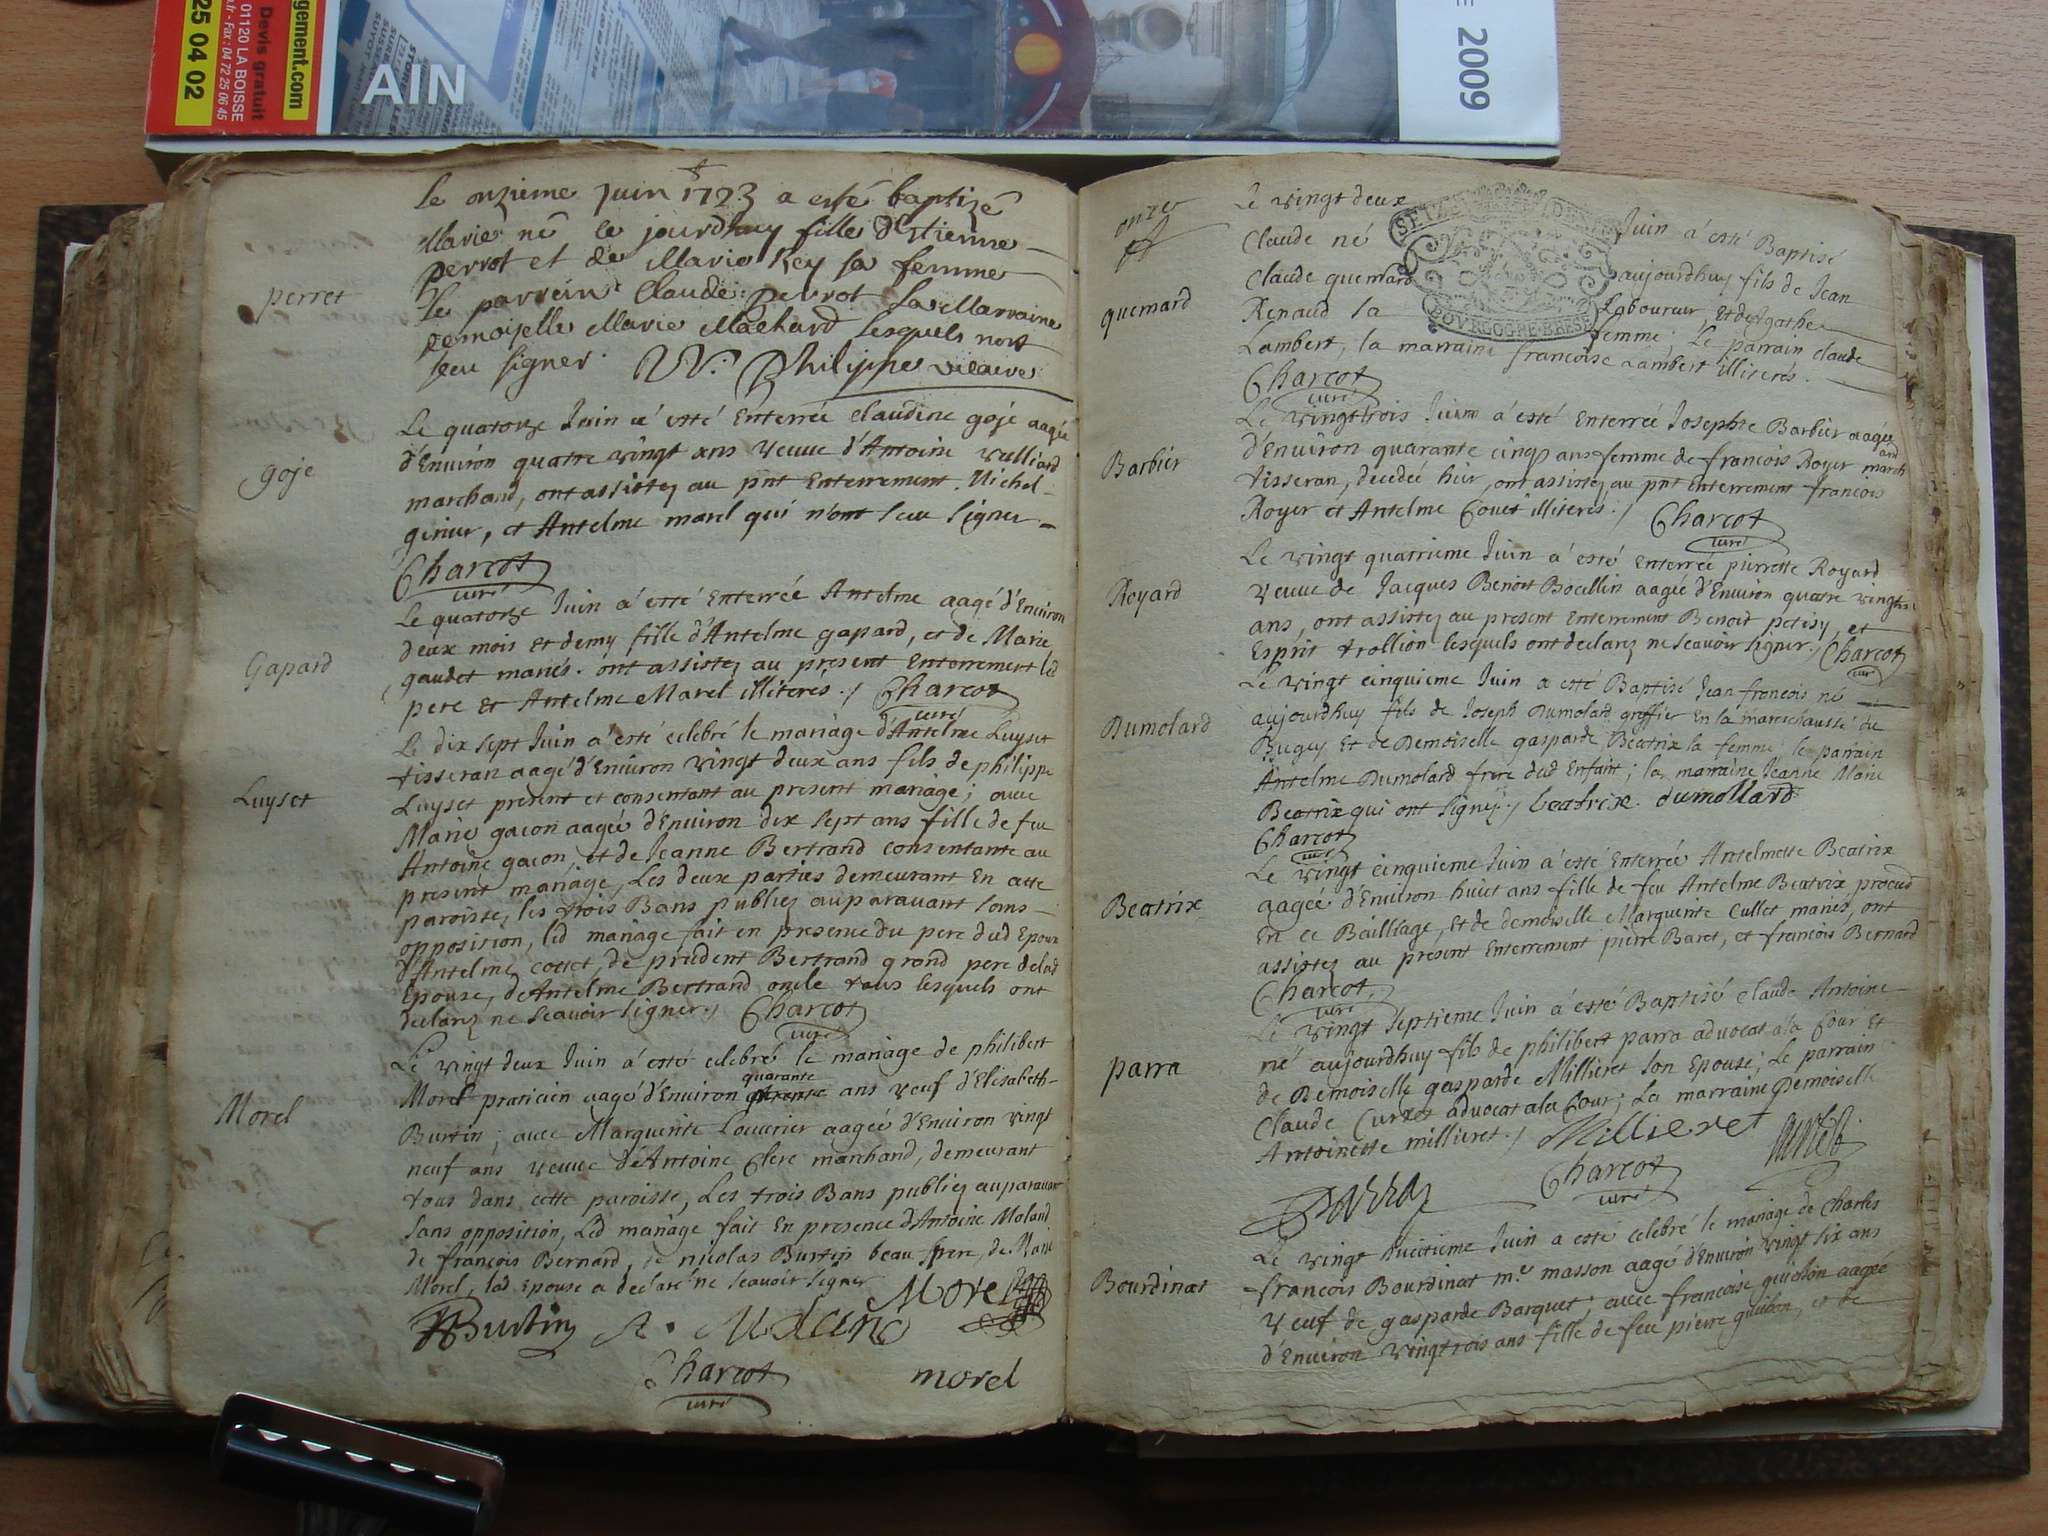 gement.com
Devis gratuit
01120 LA BOISSE
.fr - Fax : 04 72 25 06 45
25 04 02
AIN
2009
le onzieme juin 1723 a esté baptizé
Marie né ce jourdhuy fille d'Estienne
perrot et de Marie Rey sa femme
perret
Le parrein Claude perrot la Marraine
demoiselle Marie Machard lesquels nont
sceu signer. Philippe vicaire
Le quatorze Juin a' esté Enterrée Claudine goje aagée
goje
d'Environ quatre vingt ans veuve d'Antoine vulliard
marchand, ont assistez au pnt Enterrement Michel
, et Antelme marel qui n'ont sceu signer
Charcot
curé
Le quatorze Juin a' esté Enterrée Antelme aagé d'Environ
deux mois et demy fille d'Antelme gapard, et de Marie
Gapard
gaudet mariés. ont assistez au présent Enterrement led
pere et Antelme Marel illiteres ./ Charcot
curé
Le dix sept Juin a' esté celebré le mariage d'Antelme Luyset
tisseran aagé d'Environ vingt deux ans fils de philippe
Luyset
Luyset présent et consentant au present mariage; avec
Marie gacon aagée d'Environ dix sept ans fille de feu
Antoine gacon, et de Jeanne Bertrand consentante au
present mariage, Les deux parties demeurant En cette
paroisse, les trois Bans publiez auparavant sans
opposition, led mariage fait en presence du pere dud Epoux
d'Antelme cottet, de prudent Bertrand grand pere delad
Epouse, de Antelme Bertrand oncle tous lesquels ont
declaré ne scavoir signer ./ Charcot
curé
Le vingt deux Juin a' esté celebré le mariage de philibert
quarante
Morel praticien aagé d'Environ ans veuf d'Elisabeth
Morel
Burtin; avec Marguerite Louvrier aagée d'Environ vingt
neuf ans veuve de Antoine Clerc marchand, demeurant
tous dans cette paroisse, Les trois Bans publiez auparavant
sans opposition, Led mariage fait En presence d'Antoine Moland
de françois Bernard, de nicolas Burtin beau frere, de Marie
Morel, lad Epouse a declaré ne scavoir signer Morel
Burtin
Charcot morel
curé
onze
Le vingt deux Juin a' esté Baptisé
Claude né aujourdhuy fils de Jean
Claude quemard Laboureur, Et de Agathe
quemard
Renaud sa femme; Le parrain claude
Lambert, la marraine francoise Lambert illiterés.
Charcot
curé
Le vingttrois Juin a' esté Enterrée Josephte Barbier aagée
Barbier
d'Environ quarante cinq ans femme de françois Royer march
and
tisseran, decedée hier, ont assistez au pnt enterrement françois
Royer et Antelme Couet illiteres ./ Charcot
curé
Le vingt quatrieme Juin a' esté enterrée pierrette Royard
Royard
veuve de Jacques Benoit Bocellin aagée d'Environ quatre vingts
ans, ont assistez au present Enterrement Benoit petisy, et
Esprit trollion lesquels ont declarez ne scavoir signer ./ Charcot
curé
Le vingt cinquieme Juin a esté Baptisé Jean françois né
Dumolard
aujourdhuy fils de Joseph Dumolard greffier En la mareschaussé du
Bugey Et de Demoiselle gasparde Beatrix sa femme; le parrain
Antelme Dumolard frere dud Enfant; la marraine Jeanne Marie
Beatrix qui ont signéz ./ beatrix. dumollard
Charcot
curé
Le vingt cinquieme Juin a' esté Enterrée Antelmette Beatrix
Beatrix
aagée d'Environ huict ans fille de feu Antelme Beatrix procureur
En ce Bailliage, Et de demoiselle Marguerite Cullet mariés, ont
assistez au present Enterrement pierre Baret, et françois Bernard
Charcot
curé
Le vingt septieme Juin a' esté Baptisé Claude Antoine
parra
né aujourdhuy fils de philibert parra advocat a la Cour Et
de Demoiselle gasparde Millieret son Epouse; Le parrain
Claude advocat a la Cour; La marraine Demoiselle
Antoinette millieret ./ Millieret
Parra Charcot
curé
Le vingt huitieme Juin a esté celebré le mariage de Charles
Bourdinat
françois Bourdinat m.e masson aagé d'Environ vingt six ans
veuf de gasparde Barquet; avec francoise guibon aagée
d'Environ vingttrois ans fille de feu pierre guibon, et de